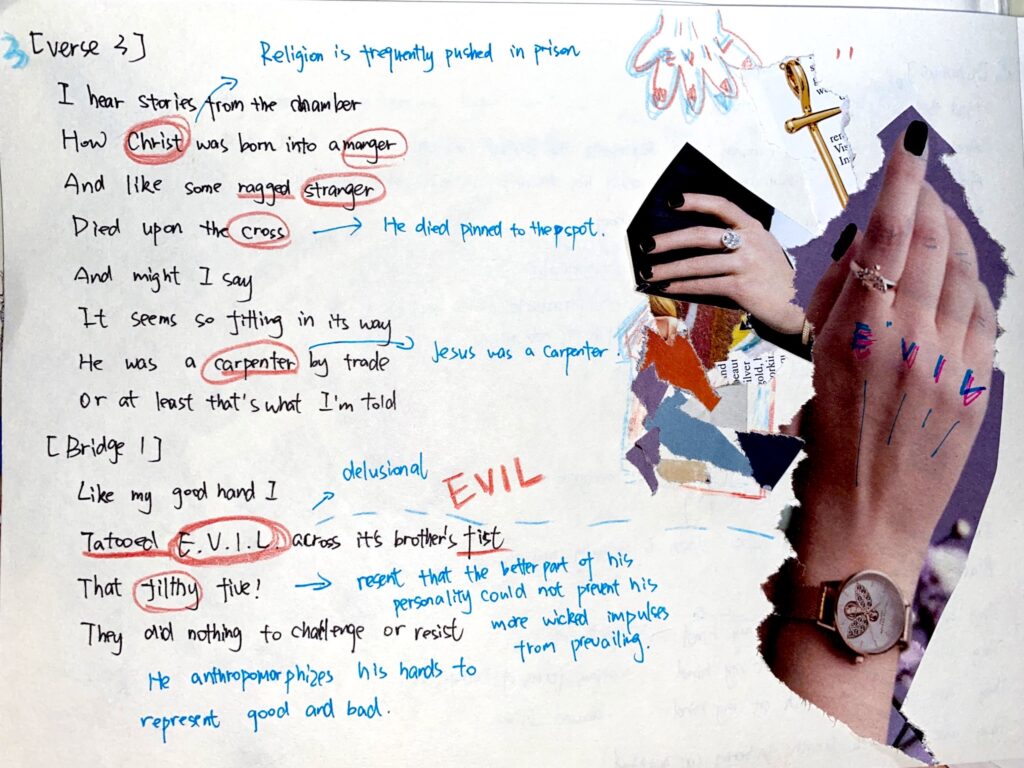 3 [verse 3]
Religion is frequently pushed in prison
I hear stories from the chamber
How Christ was born into a manger
And like some ragged stranger
Died upon the cross → He died pinned to the spot.
And might I say
It seems so fitting in its way
He was a carpenter by trade
Jesus was a carpenter
Or at least that's what I'm told
[Bridge 1]
delusional
Like my good hand I
EVIL
Tatooed E.V.I.L. across it's brother's fist
That filthy five! → resent that the better part of his
personality could not prevent his
They did nothing to challenge or resist
more wicked impulses
from prevailing.
He anthropomorphizes his hands to
represent good and bad.
E V I L